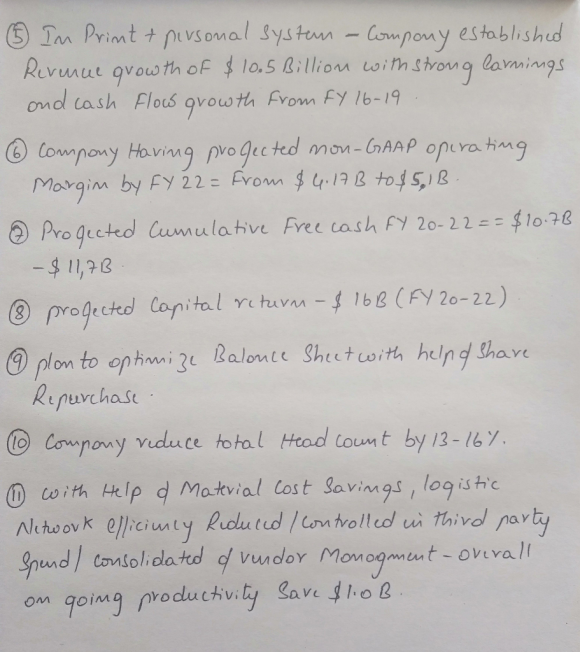 ⑤ In Print + personal System - Company established
Revenue growth OF $ 10.5 Billion with strong Earnings
and cash Flows growth From FY 16-19
⑥ Company Having projected non-GAAP operating
Margin by FY 22 = From $ 4.17 B to $ 5,1B.
⑦ Projected Cumulative Free cash FY 20-22 == $10.7B
- $ 11,7B
⑧ projected Capital return - $ 16B (FY 20-22)
⑨ plan to optimize Balance Sheet with help of Share
Repurchase.
⑩ Company reduce total Head count by 13-16%.
⑪ with Help of Material Cost Savings, logistic
Network efficiency Reduced / controlled in third party
Spend / consolidated of vendor Managment - overall
on going productivity Save $1.0 B.